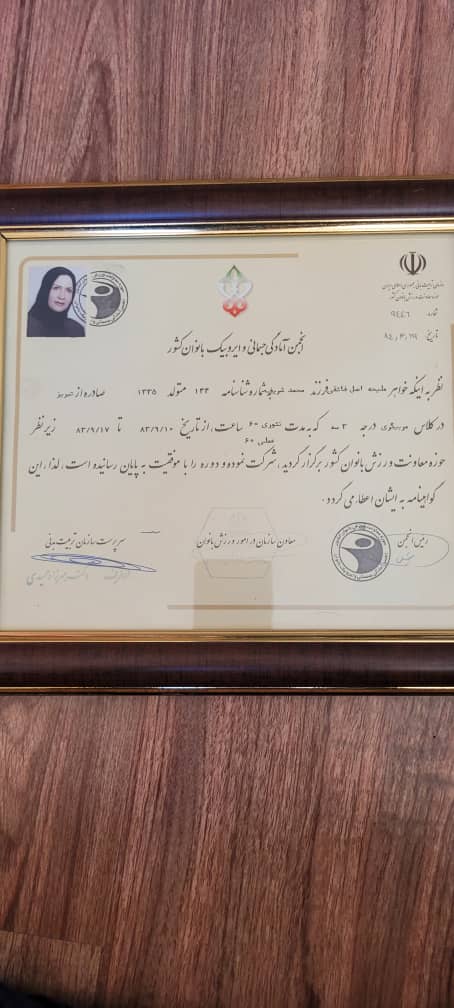 سازمان تربیت بدنی جمهوری اسلامی ایران
حوزه معاونت ورزش بانوان کشور
شماره ۹۴۴۶
تاریخ
انجمن آمادگی جسمانی و ایروبیک بانوان کشور
نظر به اینکه خواهر ملیحه اصل فرزند محمد شماره شناسنامه ۱۳۳ متولد ۱۳۳۵ صادره از تبریز
در کلاس مربیگری درجه ۳ که به مدت تئوری ۶۰ ساعت، از تاریخ ۸۳/۹/۱۰ تا ۸۳/۹/۱۷ زیر نظر
عملی ۶۰
حوزه معاونت ورزش بانوان کشور برگزار گردید، شرکت نموده و دوره را با موفقیت به پایان رسانیده است، لذا، این
گواهینامه به ایشان اعطا می گردد.
رئیس انجمن
معاون سازمان در امور ورزش بانوان
سرپرست سازمان تربیت بدنی